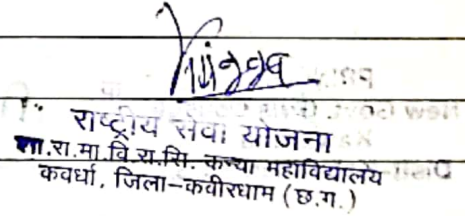 राष्ट्रीय सेवा योजना
शा.रा.मा.वि.रा.सि. कन्या महाविद्यालय
कवर्धा, जिला-कबीरधाम (छ.ग.)